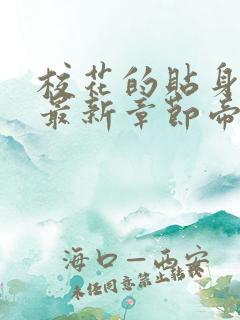 校花的贴身
最新章节
海口—西安
未经同意禁止转载